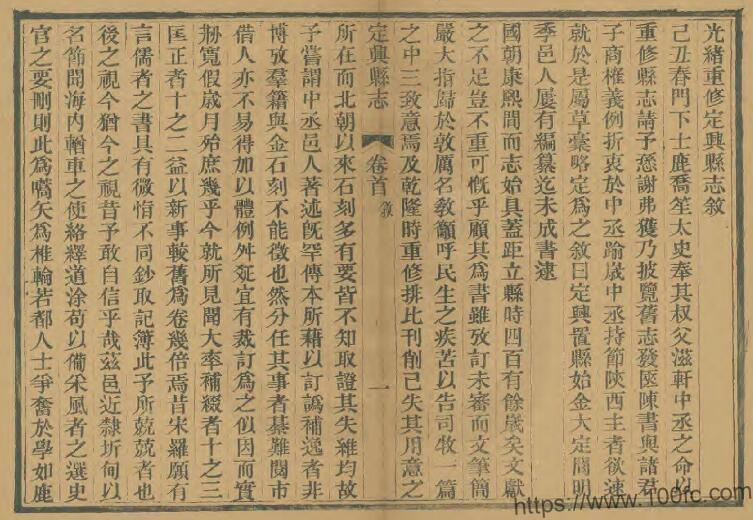 光緒重修定興縣志敘
己丑春門下士鹿喬笙太史奉其叔父滋軒中丞之命以
重修縣志請予悉謝弗獲乃披覽舊志發篋陳書與諸君
子商榷義例折衷於中丞踰歲中丞持節陝西主者欲速
就於是屬草稾略定爲之敘曰定興置縣始金大定閒明
季邑人屢有編纂迄未成書逮
國朝康熙間而志始具蓋距立縣時四百有餘歲矣文獻
之不足豈不重可慨乎顧其爲書雖攷訂未審而文筆簡
嚴大指歸於敦厲名教籲呼民生之疾苦以告司牧一篇
之中三致意焉及乾隆時重修排比刊削已失其用意之
定興縣志
卷首
敘
一
所在而北朝以來石刻多有要皆不知取證其失維均故
予嘗謂中丞邑人著述旣罕傳本所藉以訂譌補逸者非
博攷羣籍與金石刻不能徵也然分任其事者綦難閱市
借人亦不易得加以體例舛延宜有裁訂爲之似因而實
剏寬假歲月殆庶幾乎今就所見聞大率補綴者十之三
匡正者十之二益以新事較舊爲卷幾倍焉昔宋羅願有
言儒者之書具有微恉不同鈔取記簿此予所兢兢者也
後之視今猶今之視昔予敢自信乎哉茲邑近隸折甸以
名節聞海内輶車之使絡繹道涂苟以備采風者之選史
官之要刪則此爲嚆矢爲椎輪若都人士爭奮於學如鹿
https://www.100fc.com